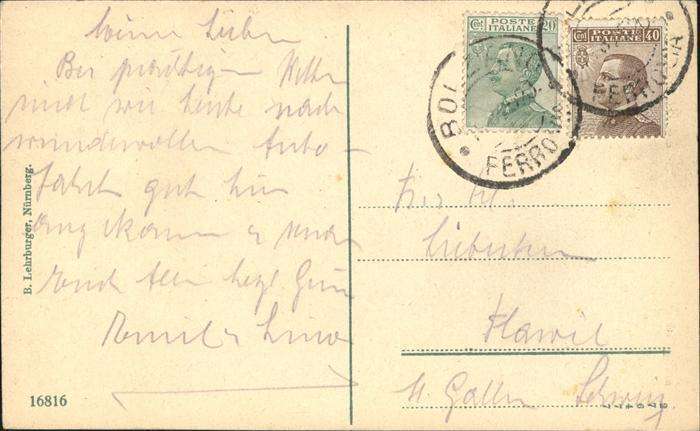 Meine Lieben
Bei prächtigem Wetter
sind wir heute nach
wundervoller Auto-
fahrt gut hier
angekommen &
Euch Allen herzl.
Emil & Lina
B. Lehrburger, Nürnberg.
16816
Cent. POSTE 20
ITALIANE
Cent. POSTE 40
ITALIANE
BOL
FERROVIA
FERROVIA
Flawil
St. Gallen Schweiz